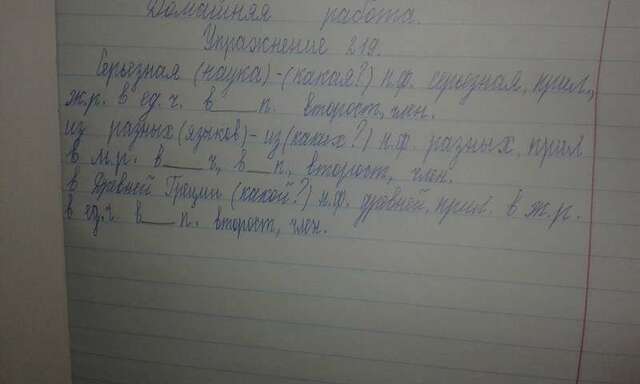 Домашняя работа.
Упражнение 219.
Серьезная (наука)-(какая?) н.ф. серьезная, прил.,
ж.р. в ед.ч. в___ п. второст, член.
из разных (языков)- из (каких?) н.ф. разных, прил
в м.р. в___ ч, в___ п., второст, член.
в Древней Греции (какой?) н.ф. древней, прил. в ж.р.
в ед.ч в___ п. второст, член.